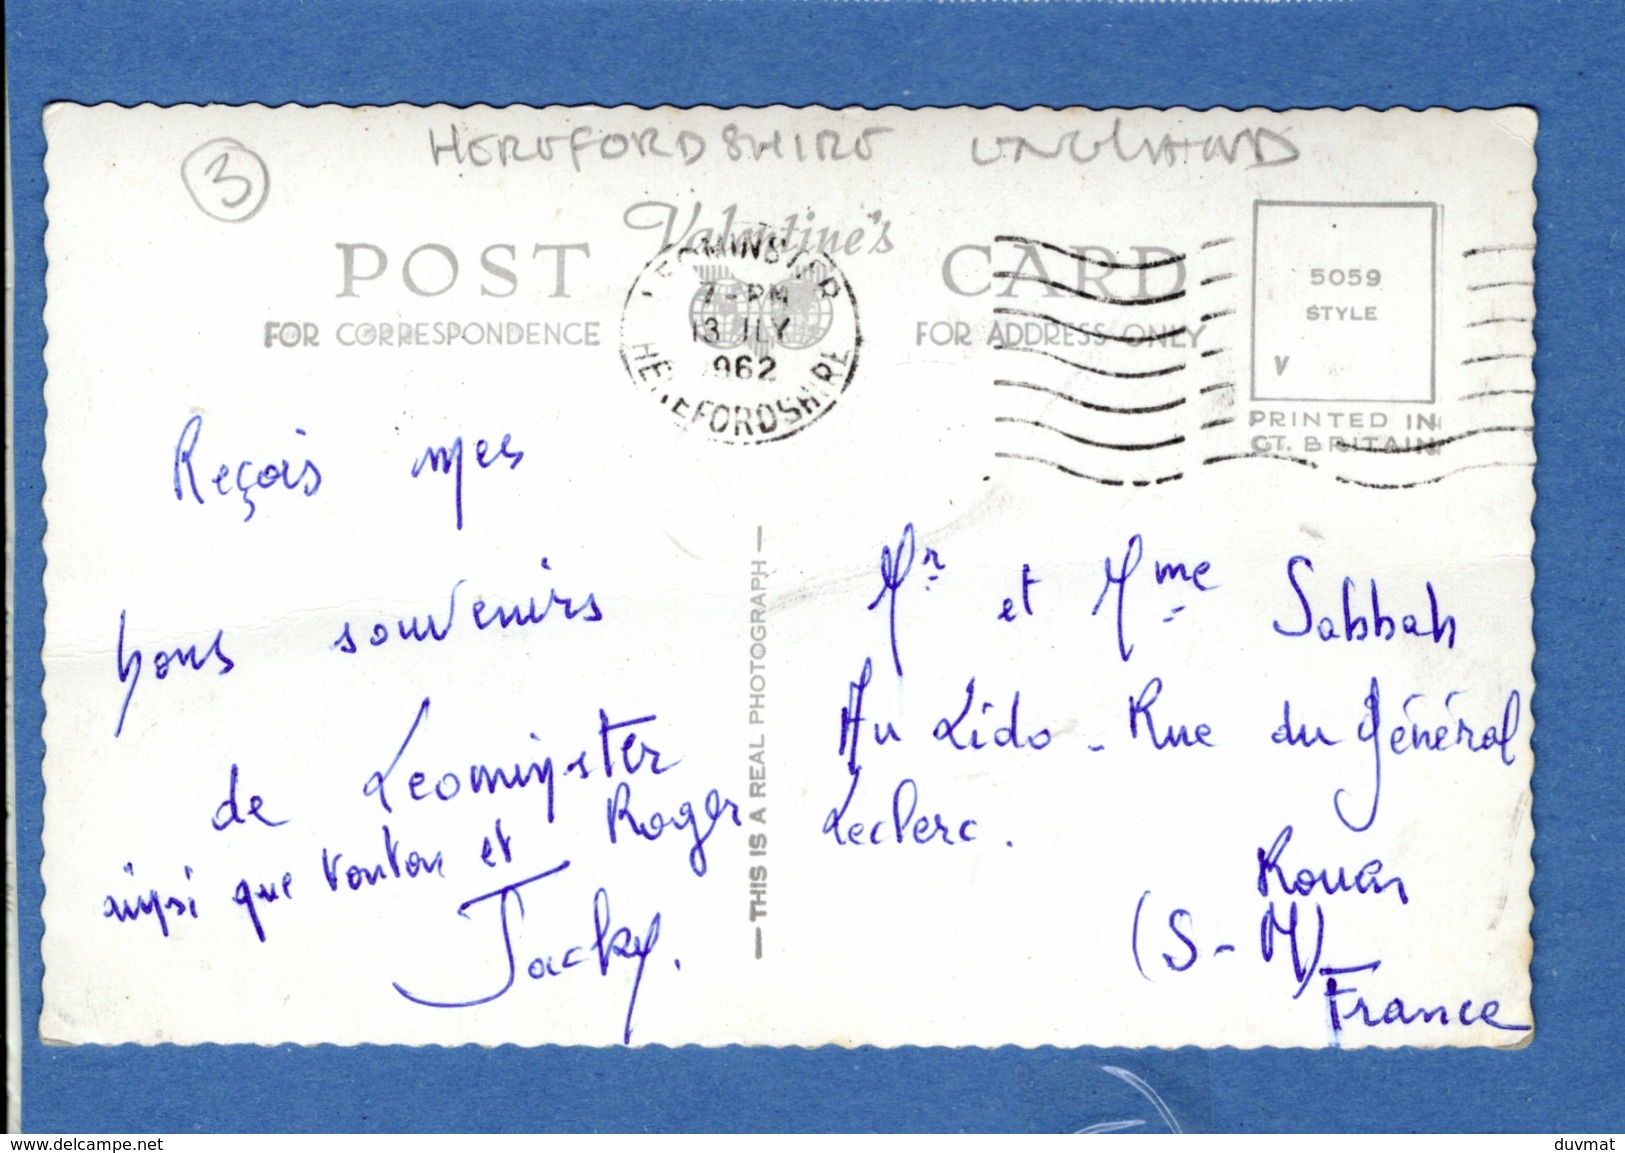 3
HEREFORDSHIRE ENGLAND
POST Valentine's CARD
FOR CORRESPONDENCE
FOR ADDRESS ONLY
LEOMINSTER
7-PM
13 JLY
1962
HEREFORDSHIRE
5059
STYLE
V
PRINTED IN
GT. BRITAIN
Reçois mes
bons souvenirs
de Leominster
ainsi que tonton et Roger
Jacky.
— THIS IS A REAL PHOTOGRAPH —
Mr et Mme Sabbah
Au Lido - Rue du Général
Leclerc.
Rouen
(S-M)
France
www.delcampe.net
duvmat